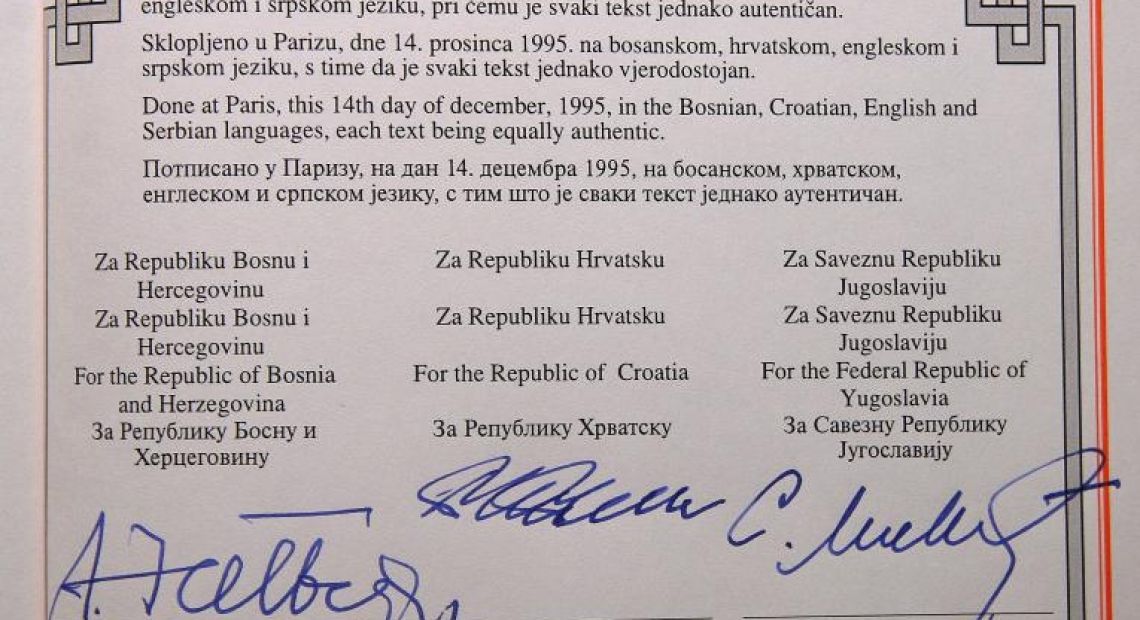 engleskom i srpskom jeziku, pri čemu je svaki tekst jednako autentičan.
Sklopljeno u Parizu, dne 14. prosinca 1995. na bosanskom, hrvatskom, engleskom i
srpskom jeziku, s time da je svaki tekst jednako vjerodostojan.
Done at Paris, this 14th day of december, 1995, in the Bosnian, Croatian, English and
Serbian languages, each text being equally authentic.
Потписано у Паризу, на дан 14. децембра 1995, на босанском, хрватском,
енглеском и српском језику, с тим што је сваки текст једнако аутентичан.
Za Republiku Bosnu i
Hercegovinu
Za Republiku Bosnu i
Hercegovinu
For the Republic of Bosnia
and Herzegovina
За Републику Босну и
Херцеговину
Za Republiku Hrvatsku
Za Republiku Hrvatsku
For the Republic of Croatia
За Републику Хрватску
Za Saveznu Republiku
Jugoslaviju
Za Saveznu Republiku
Jugoslaviju
For the Federal Republic of
Yugoslavia
За Савезну Републику
Југославију